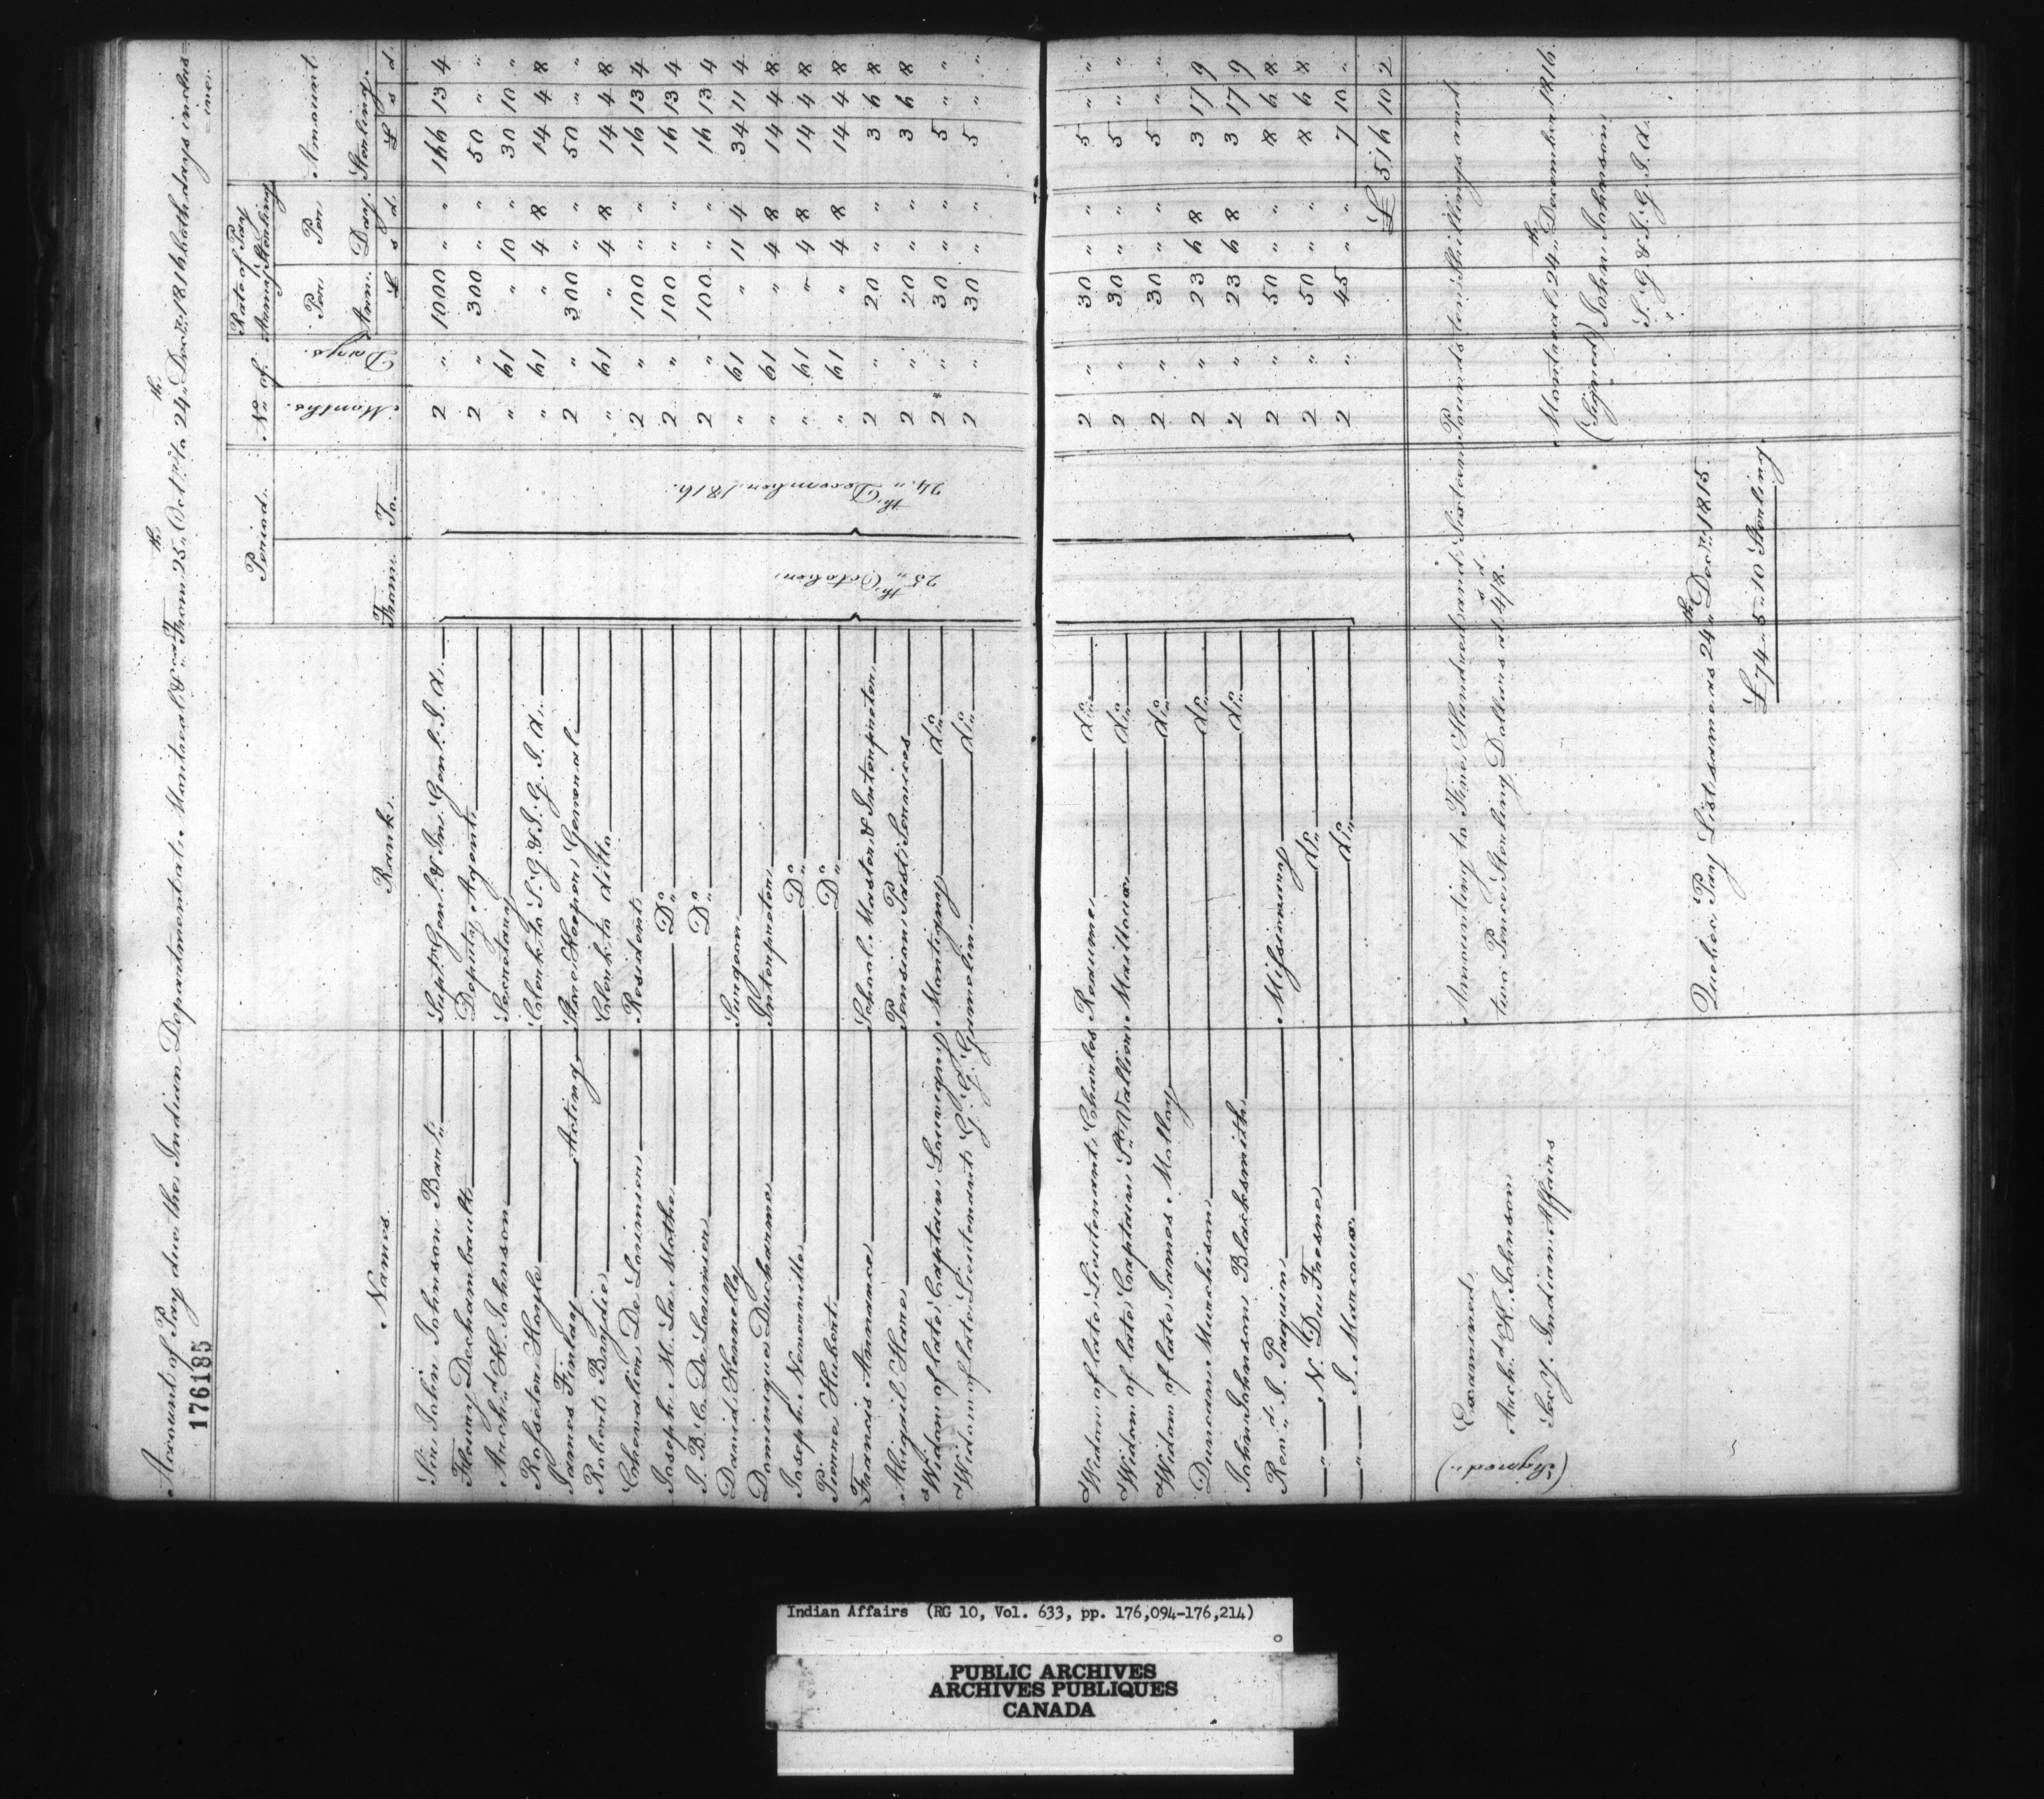 Account of Pay due the Indian Department at Montreal &c.a From 25.th Oct.r to 24.th Dec.r 1816 both days inclus=
=ive.
176185
Names. Rank. Period. N.o of Rate of Pay Army Sterling Amount
From To Months. Days. Per Ann. Per Day. Sterling.
£ s d £ s d
Sir John Johnson Bar.t Sup.t Gen.l & In.r Gen.l I. d. 2 " 1000 " " 166 13 4
Fleury Dechambault Deputy Agent 2 " 300 " " 50 " "
Arch.d K. Johnson Secretary " 61 " 10 " 30 10 "
Rosseter Hoyle Clerk to S. G. & I. G. I. d. " 61 " 4 8 14 4 8
James Finlay Acting Store Keeper General 2 " 300 " " 50 " "
Robert Bagdie Clerk to ditto " 61 " 4 8 14 4 8
Chevalier De Lorimier Resident 2 " 100 " " 16 13 4
Joseph M. La Mothe D.o 2 " 100 " " 16 13 4
J. B. C. De Lorimier D.o 2 " 100 " " 16 13 4
David Kennelly Surgeon " 61 " 11 4 34 11 4
Dominique Ducharme Interpreter " 61 " 4 8 14 4 8
Joseph Neverville D.o " 61 " 4 8 14 4 8
Pierre Hubert D.o " 61 " 4 8 14 4 8
Francis Annance School Master & Interpreter 2 " 20 " " 3 6 8
Abigil Hare Pension Past Services 2 " 20 " " 3 6 8
Widow of late Captain Louvigny Montigny d.o 2 " 30 " " 5 " "
Widow of late Lieutenant G. G. Gamelin d.o 2 " 30 " " 5 " "
25.th October
24.th December 1816.
Widow of late Lieutenant Charles Reaume d.o 2 " 30 " " 5 " "
Widow of late Captain S.t Vallier Mailloux d.o 2 " 30 " " 5 " "
Widow of late James Mollay d.o 2 " 30 " " 5 " "
Duncan Murchison d.o 2 " 23 6 8 3 17 9
John Johnson Blacksmith d.o 2 " 23 6 8 3 17 9
Rev.d J. Paquin Missionary 2 " 50 " " 8 6 8
" N. Du Fresne d.o 2 " 50 " " 8 6 8
" J. Marcoux d.o 2 " 45 " " 7 10 "
£ 516 10 2
Amounting to Five Hundred and Sixteen Pounds ten Shillings and
two Pence Sterling Dollars at 4/8.
Montreal 24.th December 1816.
(Signed) John Johnson
S. G. & I. G. I. d.
(Signed) Examined
Arch.d K. Johnson
Sec.y. Indian Affairs
Quebec Pay List same as 24.th Dec.r 1815.
£74 " 5 " 10 Sterling
Indian Affairs (RG 10, Vol. 633, pp. 176,094-176,214)
PUBLIC ARCHIVES
ARCHIVES PUBLIQUES
CANADA